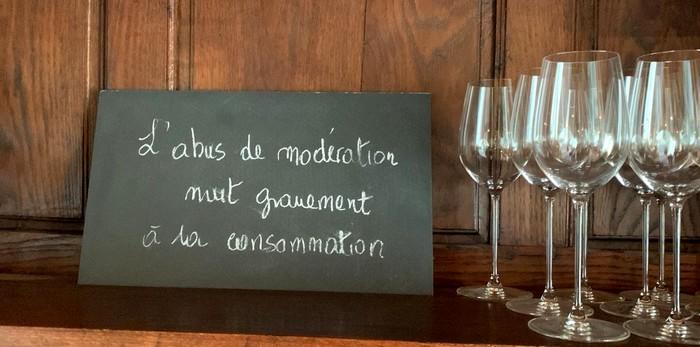 L'abus de modération
nuit gravement
à la consommation